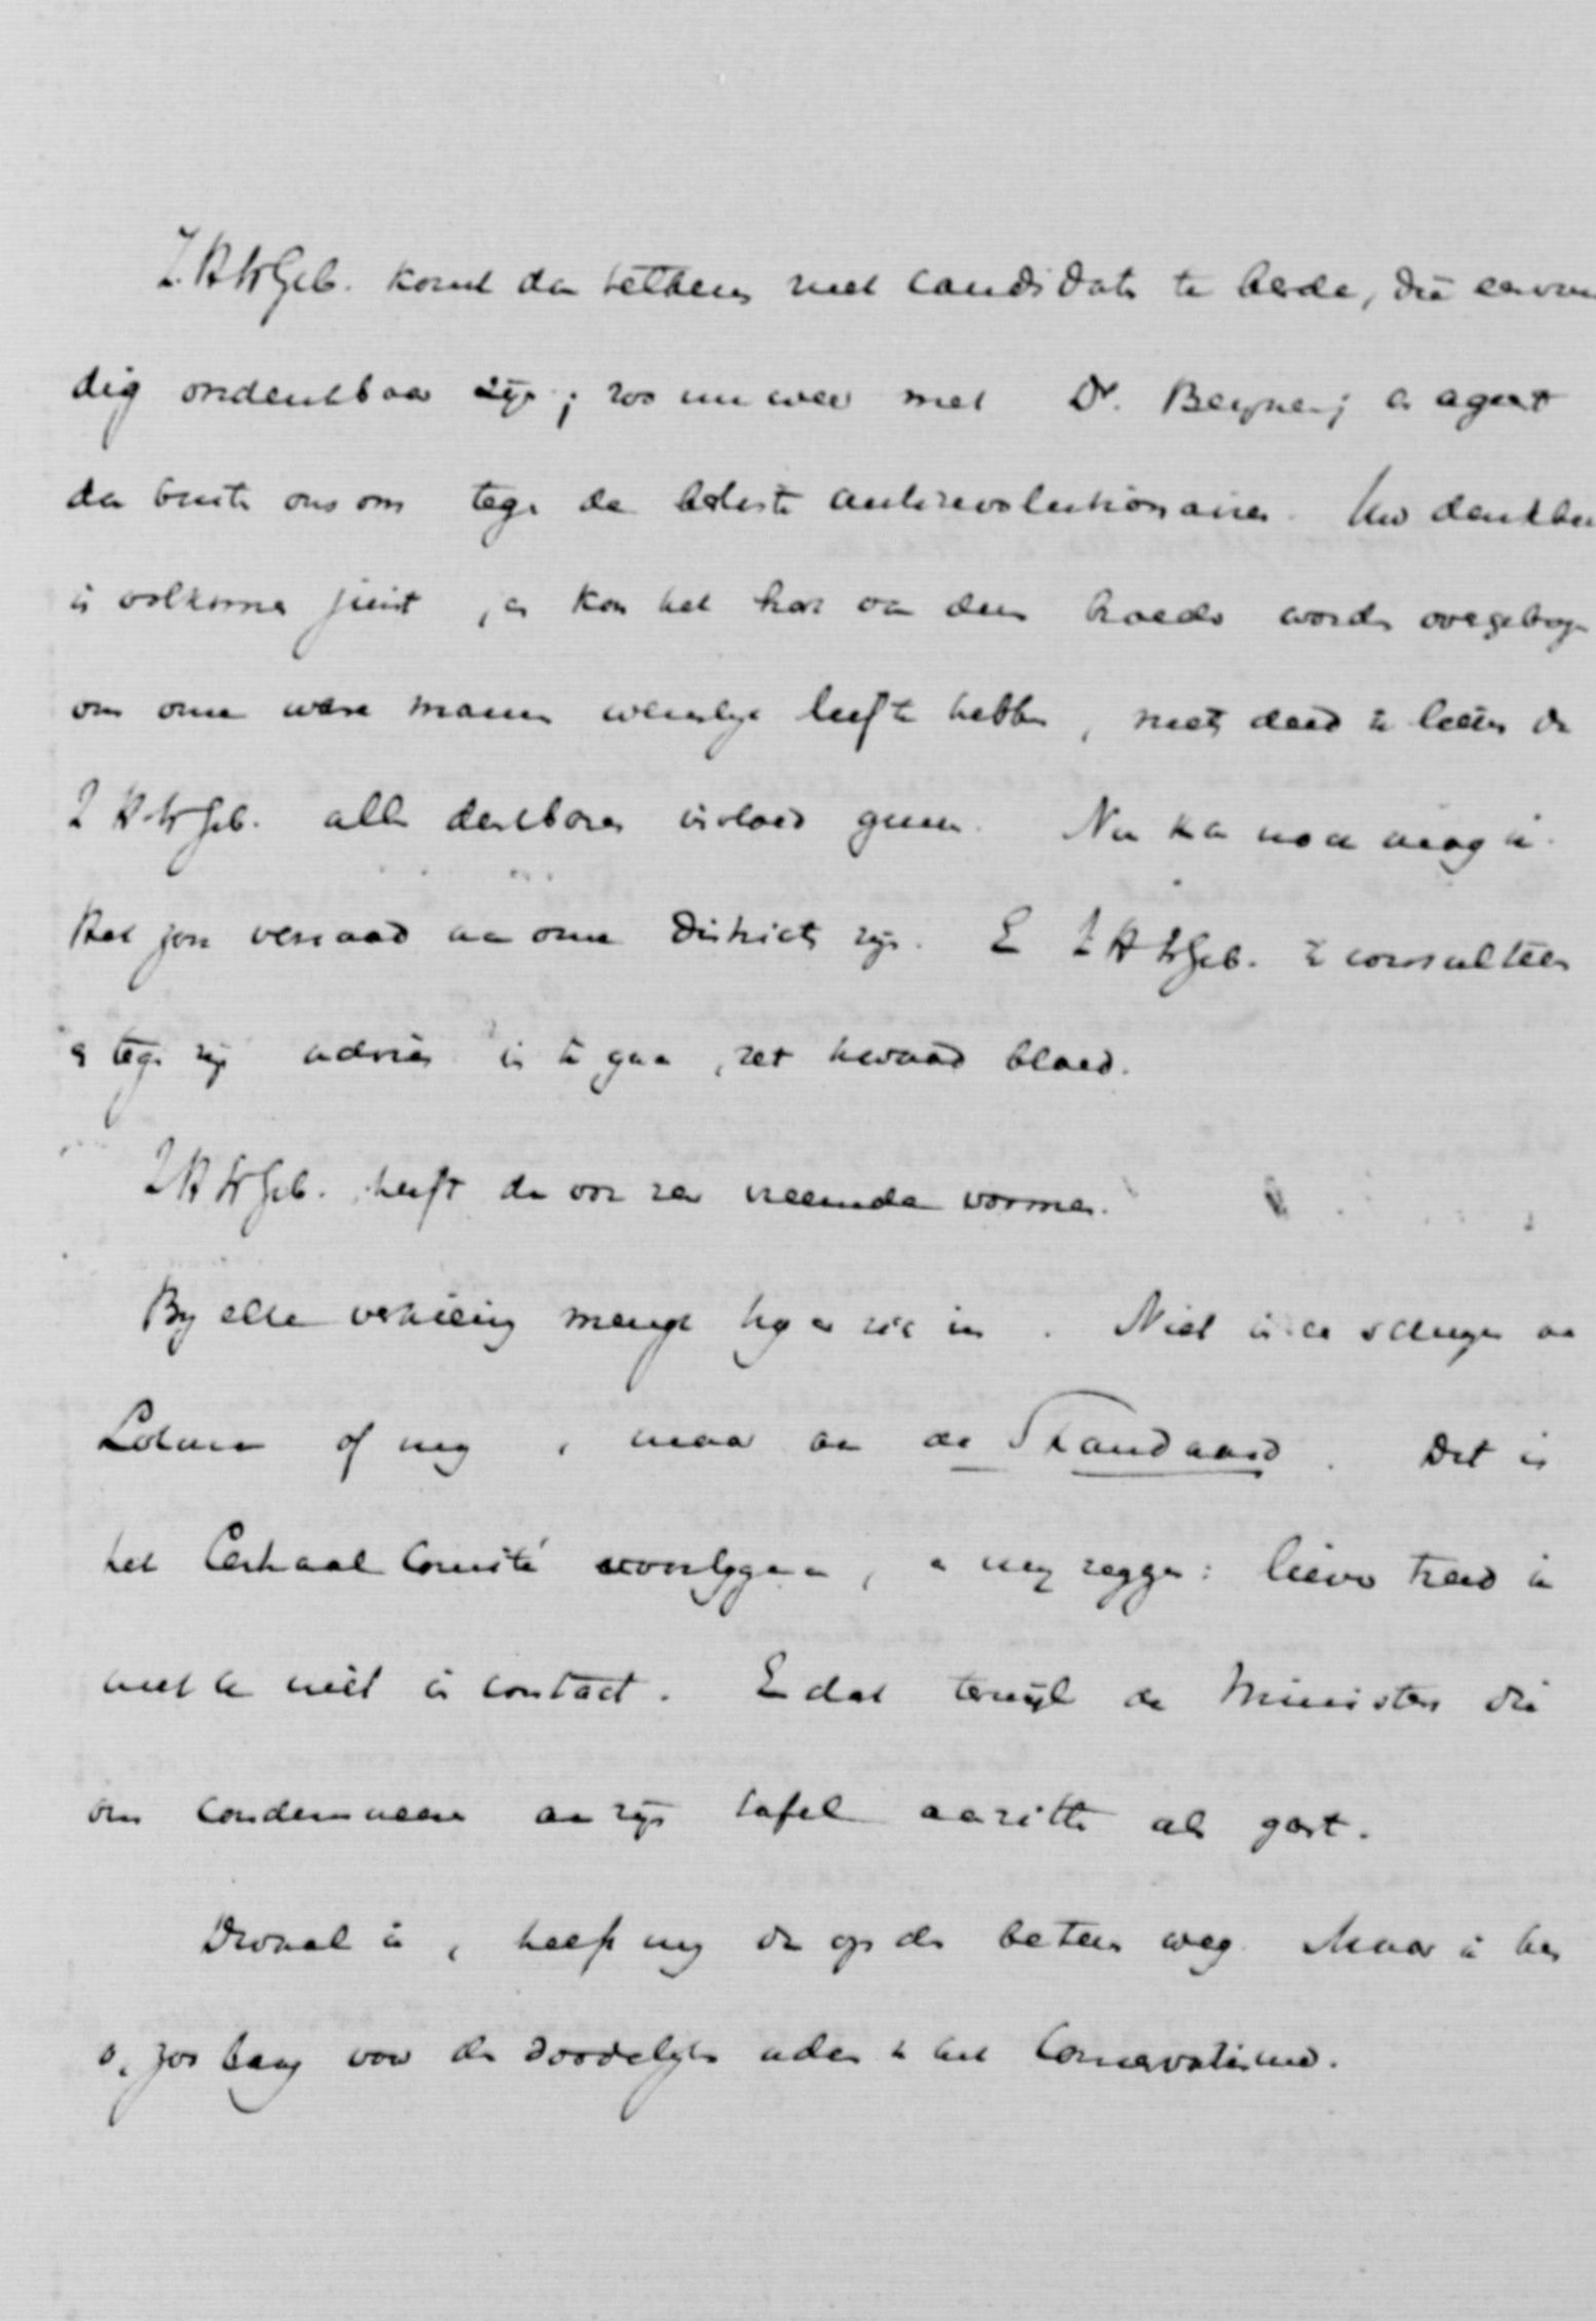 Z.HWGeb. komt dan telkens met candidaten te berde, die eenvou
dig ondenkbaar zijn; zoo nu weer met Dr. Beynen; en ageert
dan buiten ons om tegen de beste antirevolutionairen. Uw denkbeeld
is volkomen juist, en kon het hart van dien broeder worden overgebogen
om onze ware mannen wezenlijk lief te hebben, niets deed ik liever dan
Z HWGeb. alle denkbare invloed gunnen. Nu kan noch mag ik.
Het zou verraad aan onze districten zijn. En Z HWGeb. te consulteeren
en tegen zijn advies in te gaan, zet kwaad bloed.
Z HWGeb. heeft dan ook zeer vreemde vormen.
By elke verkiezing mengt hy er zich in. Niet in een schryven aan
Lohman of my, maar aan de Standaard. Dit is
het Centraal Comité voorbygaan, en my zeggen: liever treed ik
met u niet in contact. En dat terwyl de Ministers die
ons condemneeren aan zijn tafel aanzitten als gast.
Dwaal ik, help my dan op den beteren weg. Maar ik ben
o, zoo bang voor de doodelyke adem van het Conservatisme.